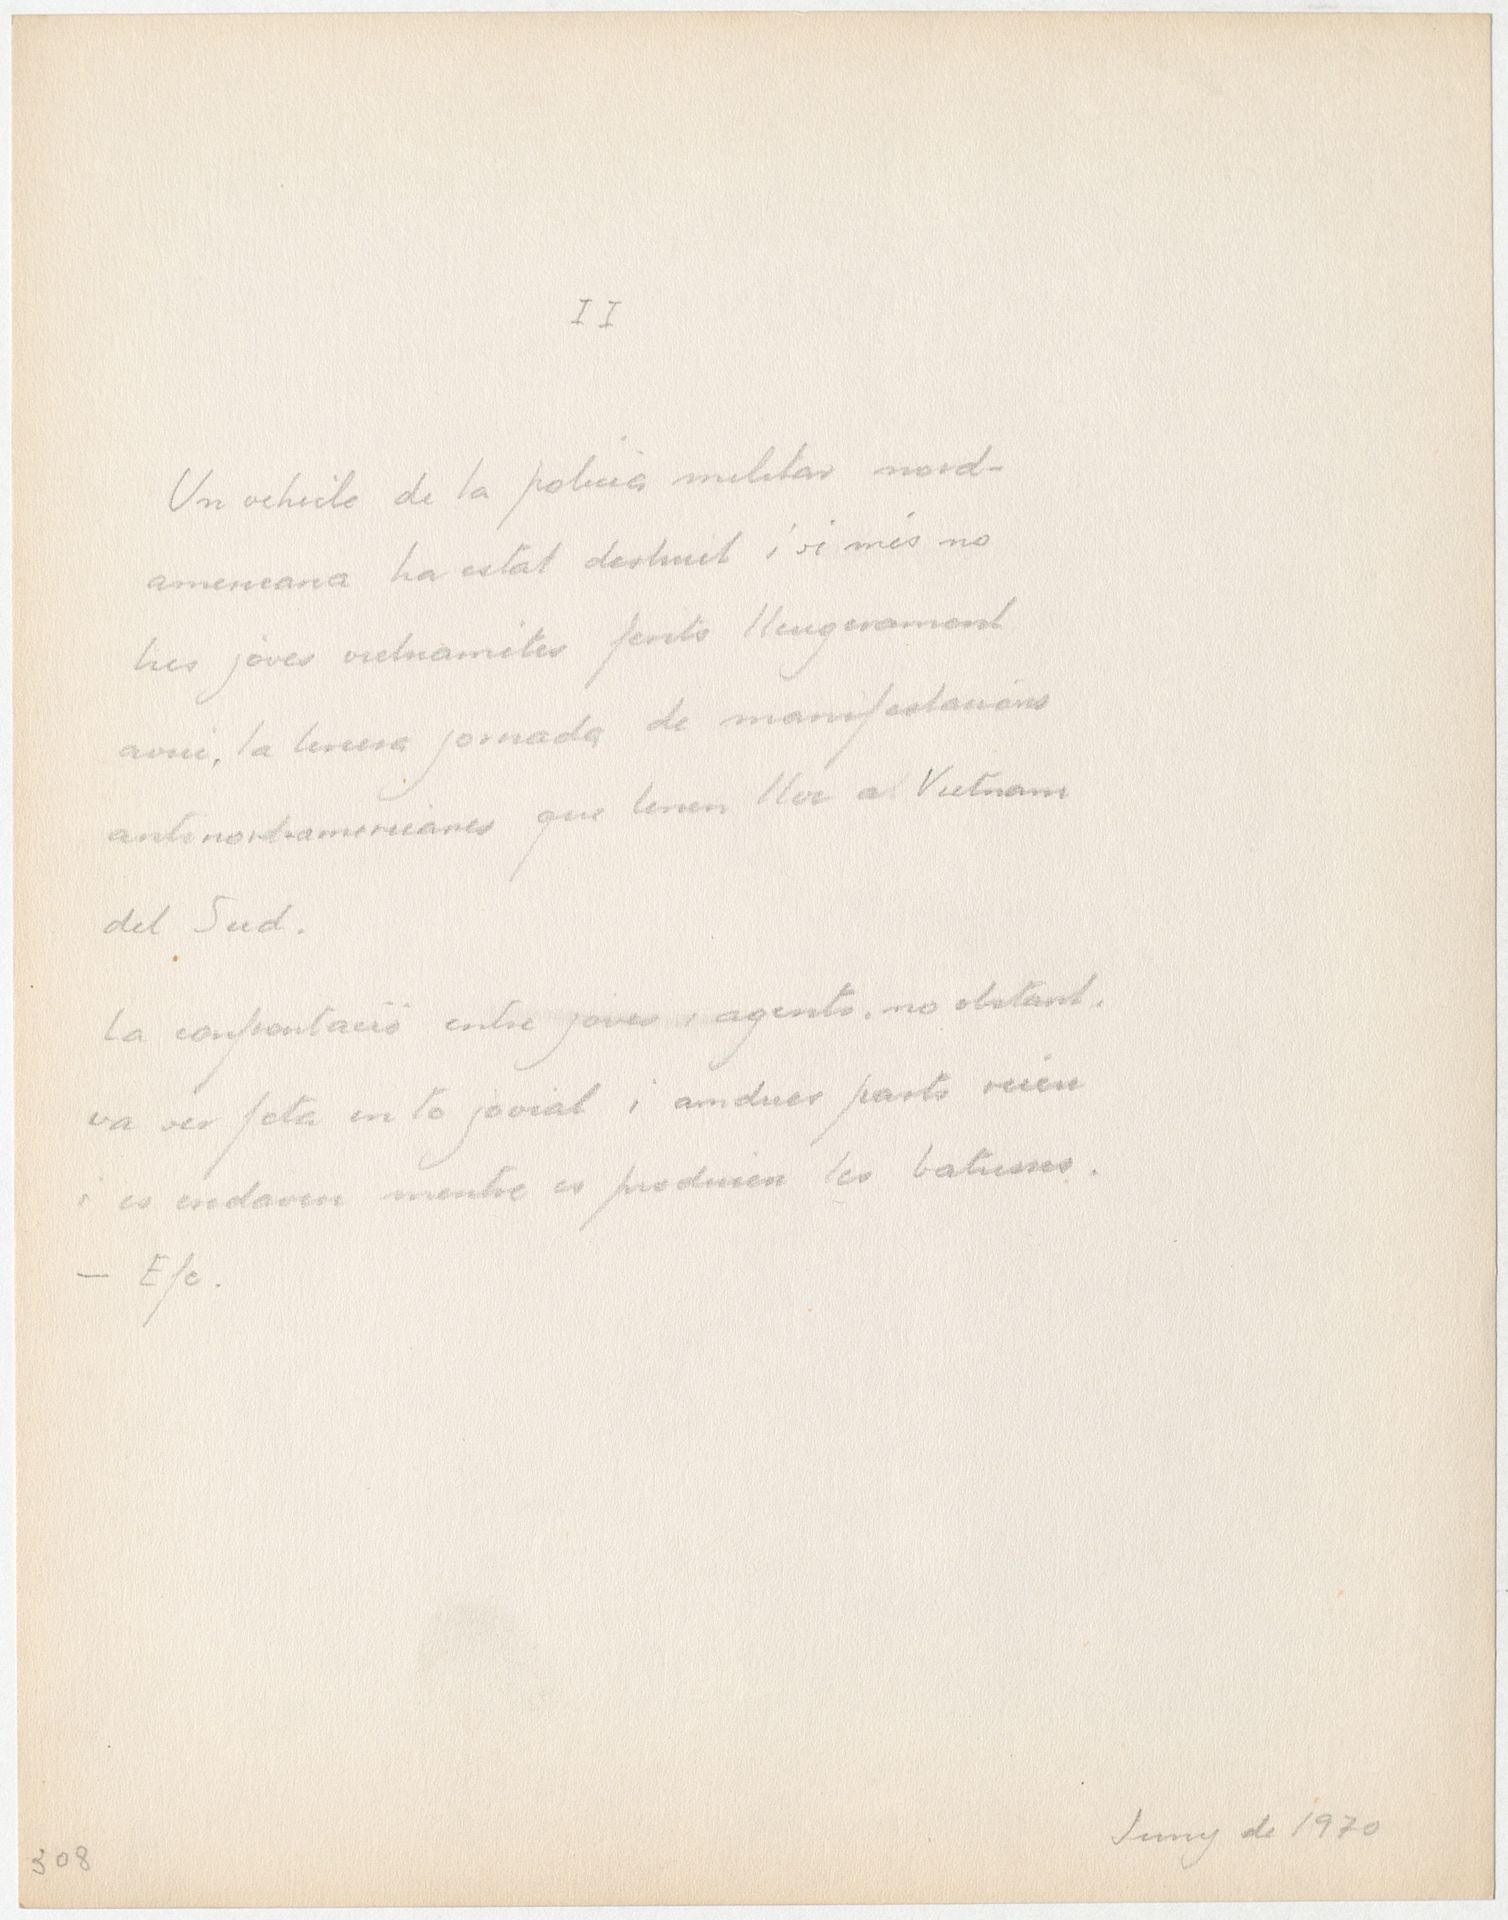 II
Un vehicle de la policia militar nord-
americana ha estat destruit i si més no
tres joves vietnamites ferits lleugerament
avui, la tercera jornada de manifestacions
antinordamericanes que tenen lloc al Vietnam
del Sud.
La confrontació entre joves i agents, no obstant,
va ser feta en to jovial i amdues parts reien
i es endaven mentre es produien les batusses.
— Efe.
Juny de 1970
308